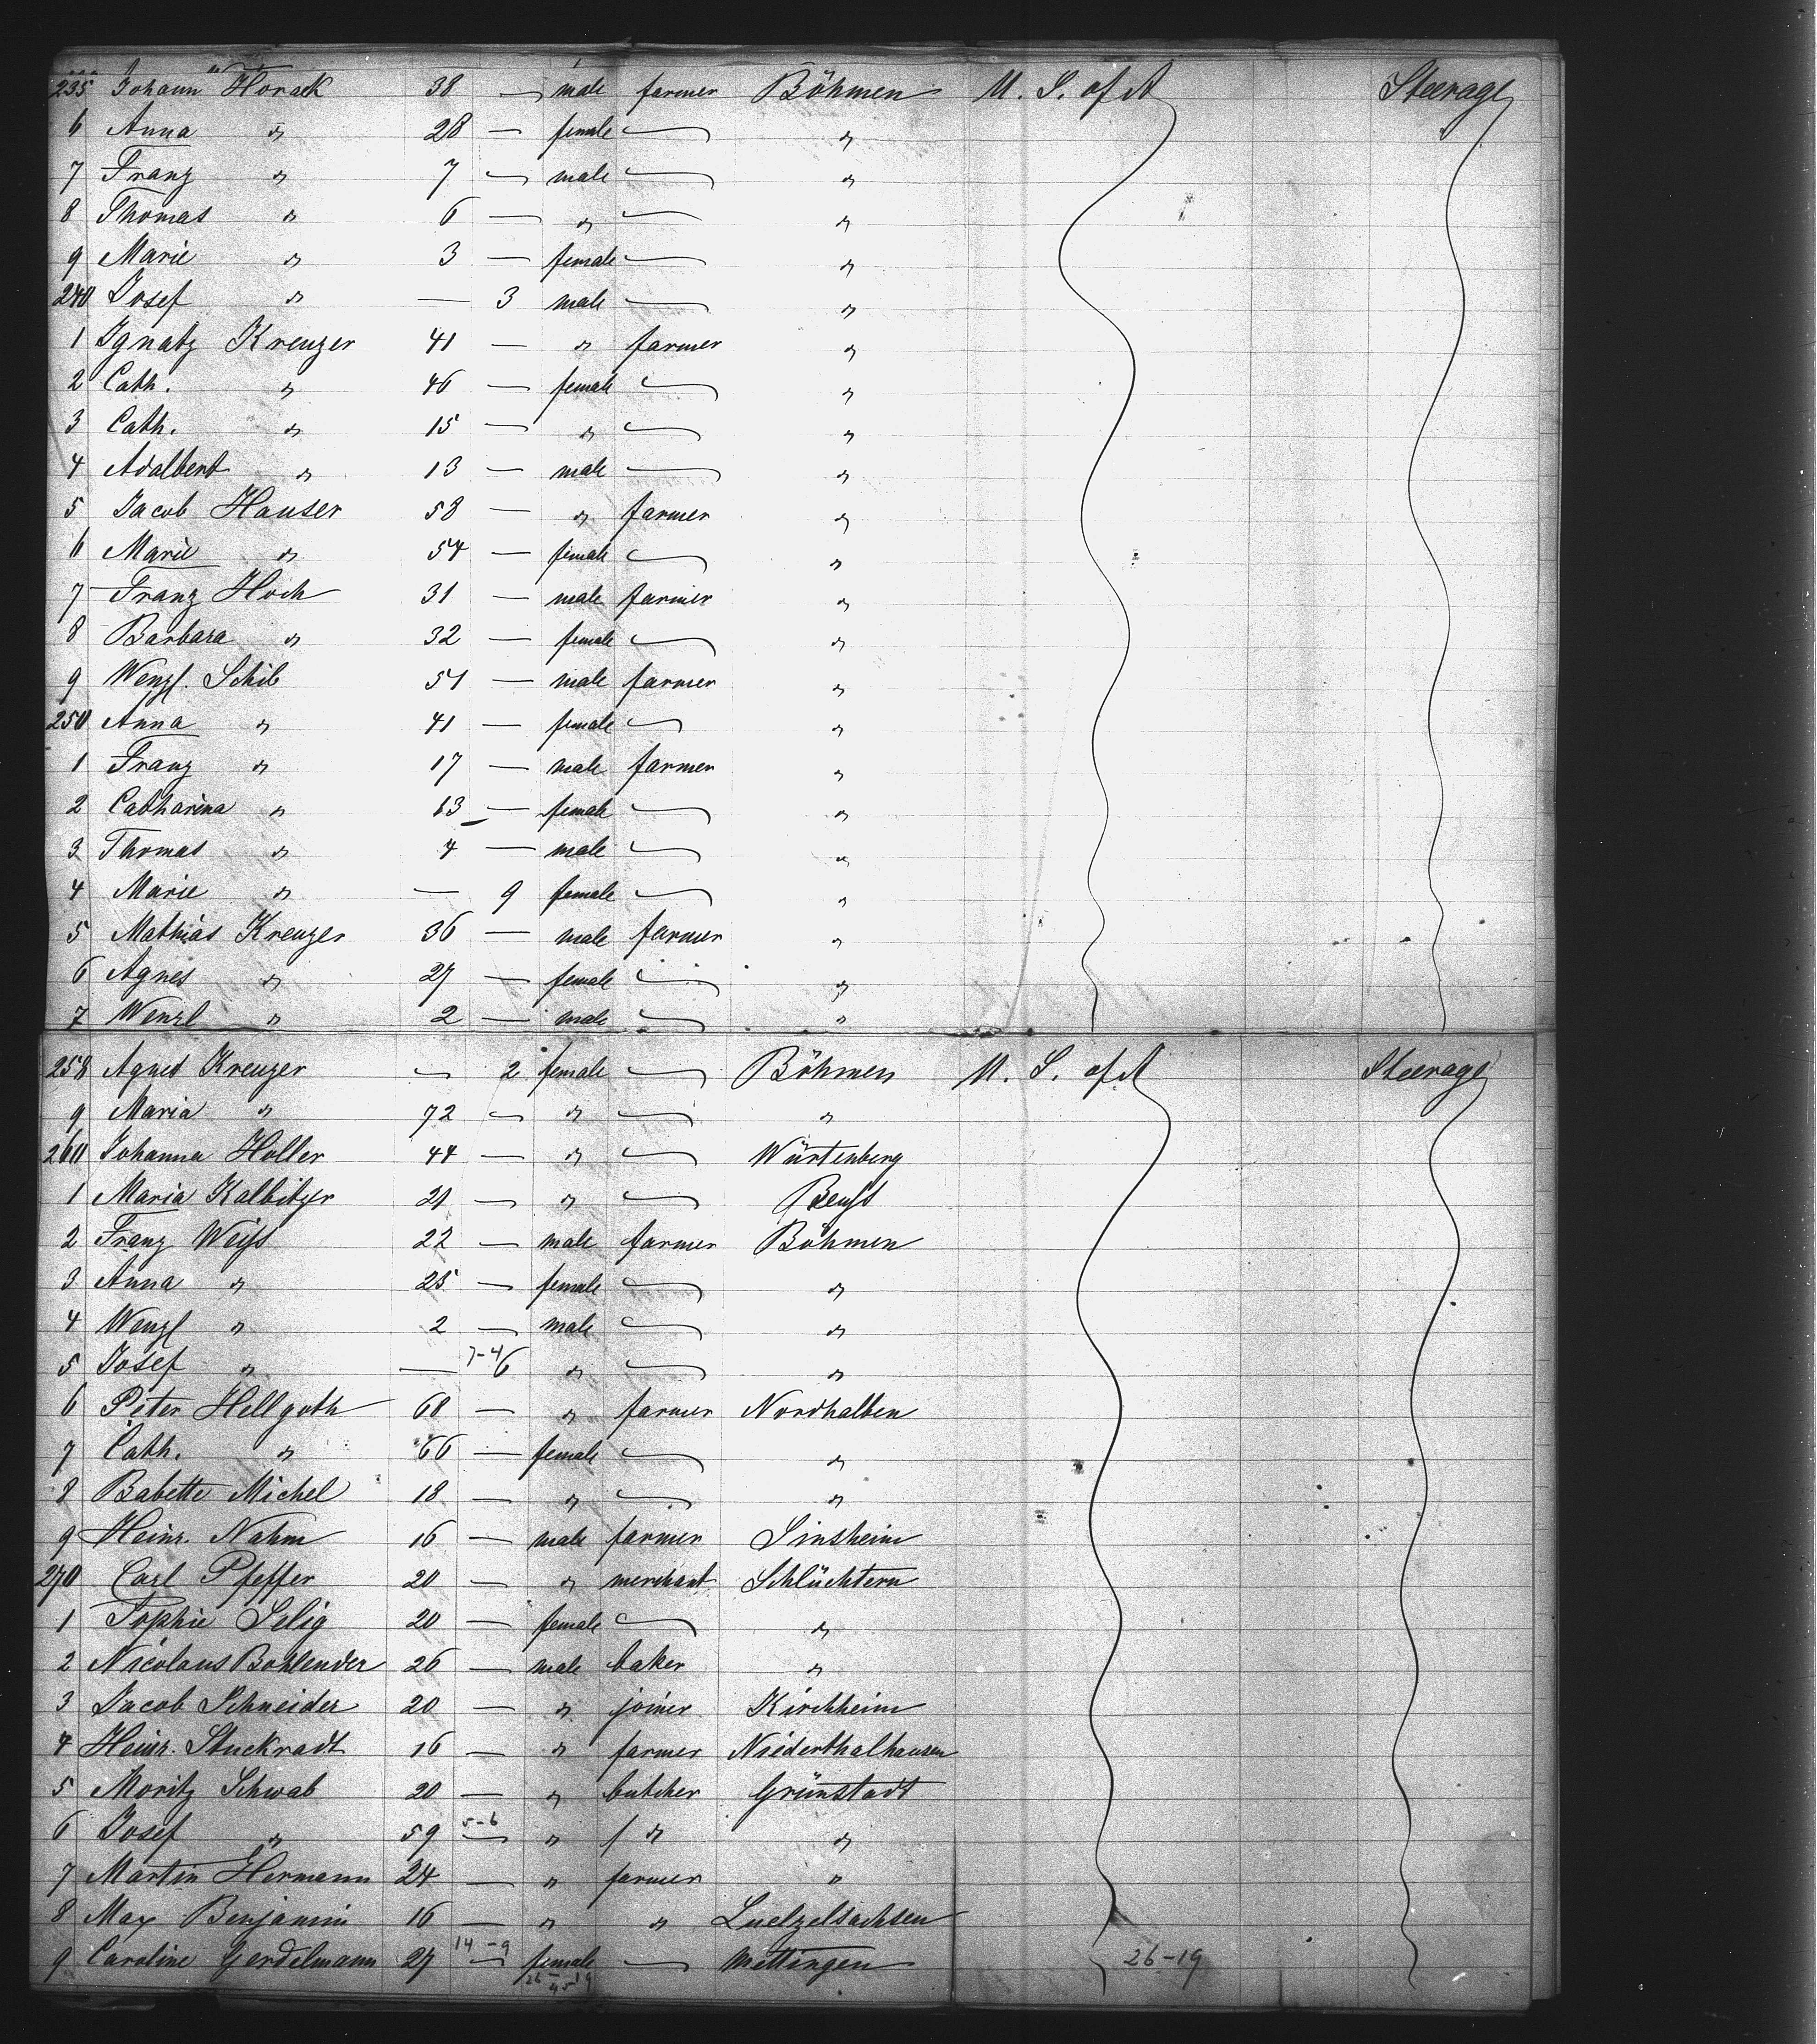 235 Johann Horack 38 — male farmer Böhmen U. S. of A Steerage
6 Anna " 28 — female — "
7 Franz " 7 — male — "
8 Thomas " 6 — " — "
9 Marie " 3 — female — "
240 Josef " — 3 male — "
1 Ignatz Kreuzer 41 — " farmer "
2 Cath. " 46 — female — "
3 Cath. " 15 — " — "
4 Adalbert " 13 — male — "
5 Jacob Hauser 58 — " farmer "
6 Marie " 54 — female — "
7 Franz Hoch 31 — male farmer "
8 Barbara " 32 — female — "
9 Wenzl. Schib 51 — male farmer "
250 Anna " 41 — female — "
1 Franz " 17 — male farmer "
2 Catharina " 13 — female — "
3 Thomas " 4 — male — "
4 Marie " — 9 female — "
5 Mathias Kreuzer 36 — male farmer "
6 Agnes " 27 — female — "
7 Wenzl " 2 — male — "
258 Agnes Kreuzer — 2 female — Böhmen U. S. of A Steerage
9 Maria " 72 — " — "
260 Johanna Holler 44 — " — Würtenberg
1 Maria Kalbitzer 21 — " — Reuss
2 Franz Weiss 22 — male farmer Böhmen
3 Anna " 25 — female — "
4 Wenzl " 2 — male — "
5 Josef " — 7-4 6 " — "
6 Peter Hellgoth 68 — " farmer Nordhalben
7 Cath. " 66 — female — "
8 Babette Michel 18 — " — "
9 Heinr. Nahm 16 — male farmer Sinsheim
270 Carl Pfeffer 20 — " merchant Schlüchtern
1 Sophie Selig 20 — female — "
2 Nicolaus Bohlender 26 — male baker "
3 Jacob Schneider 20 — " joiner Kirchheim
4 Heinr. Stuckradt 16 — " farmer Niederthalhausen
5 Moritz Schwab 20 — " butcher Grünstadt
6 Josef " 59 5-6 — " " "
7 Martin Hermann 24 — " farmer "
8 Max Benjamin 16 — " " Luelzelsachsen
9 Caroline Gerdelmann 27 14-9 — female — Mettingen 26-19
26-19
45